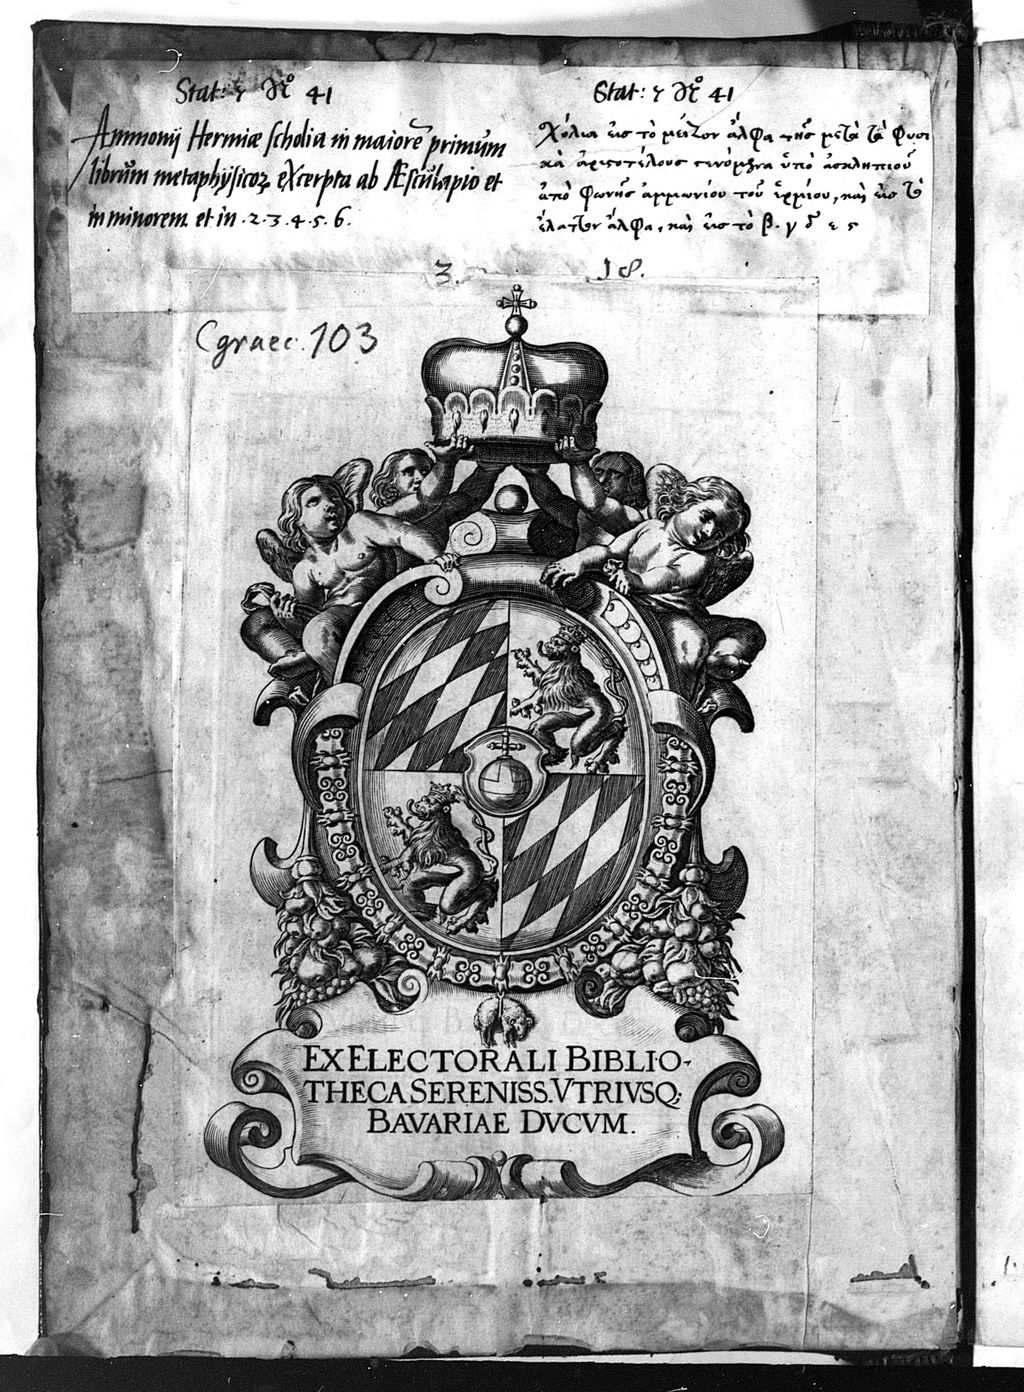 Stat: 7 No 41
Ammonij Hermiæ scholia in maiorē primum
librum metaphysicoꝝ excerpta ab Æsculapio et
in minorem et in .2.3.4.5.6.
Stat: 7 No 41
χόλια εἰς τὸ μεῖζον ἄλφα τῆς μετὰ τὰ φυσι
κὰ ἀριστοτέλους γενόμενα ὑπὸ ἀσκληπιοῦ
ἀπὸ φωνῆς ἀμμωνίου τοῦ ἑρμίου, καὶ εἰς τὸ
ἔλαττον ἄλφα, καὶ εἰς τὸ β. γ δ ε ς
3. 18.
Cgraec. 103
EX ELECTORALI BIBLIO-
THECA SERENISS. VTRIVSQ;
BAVARIAE DVCVM.